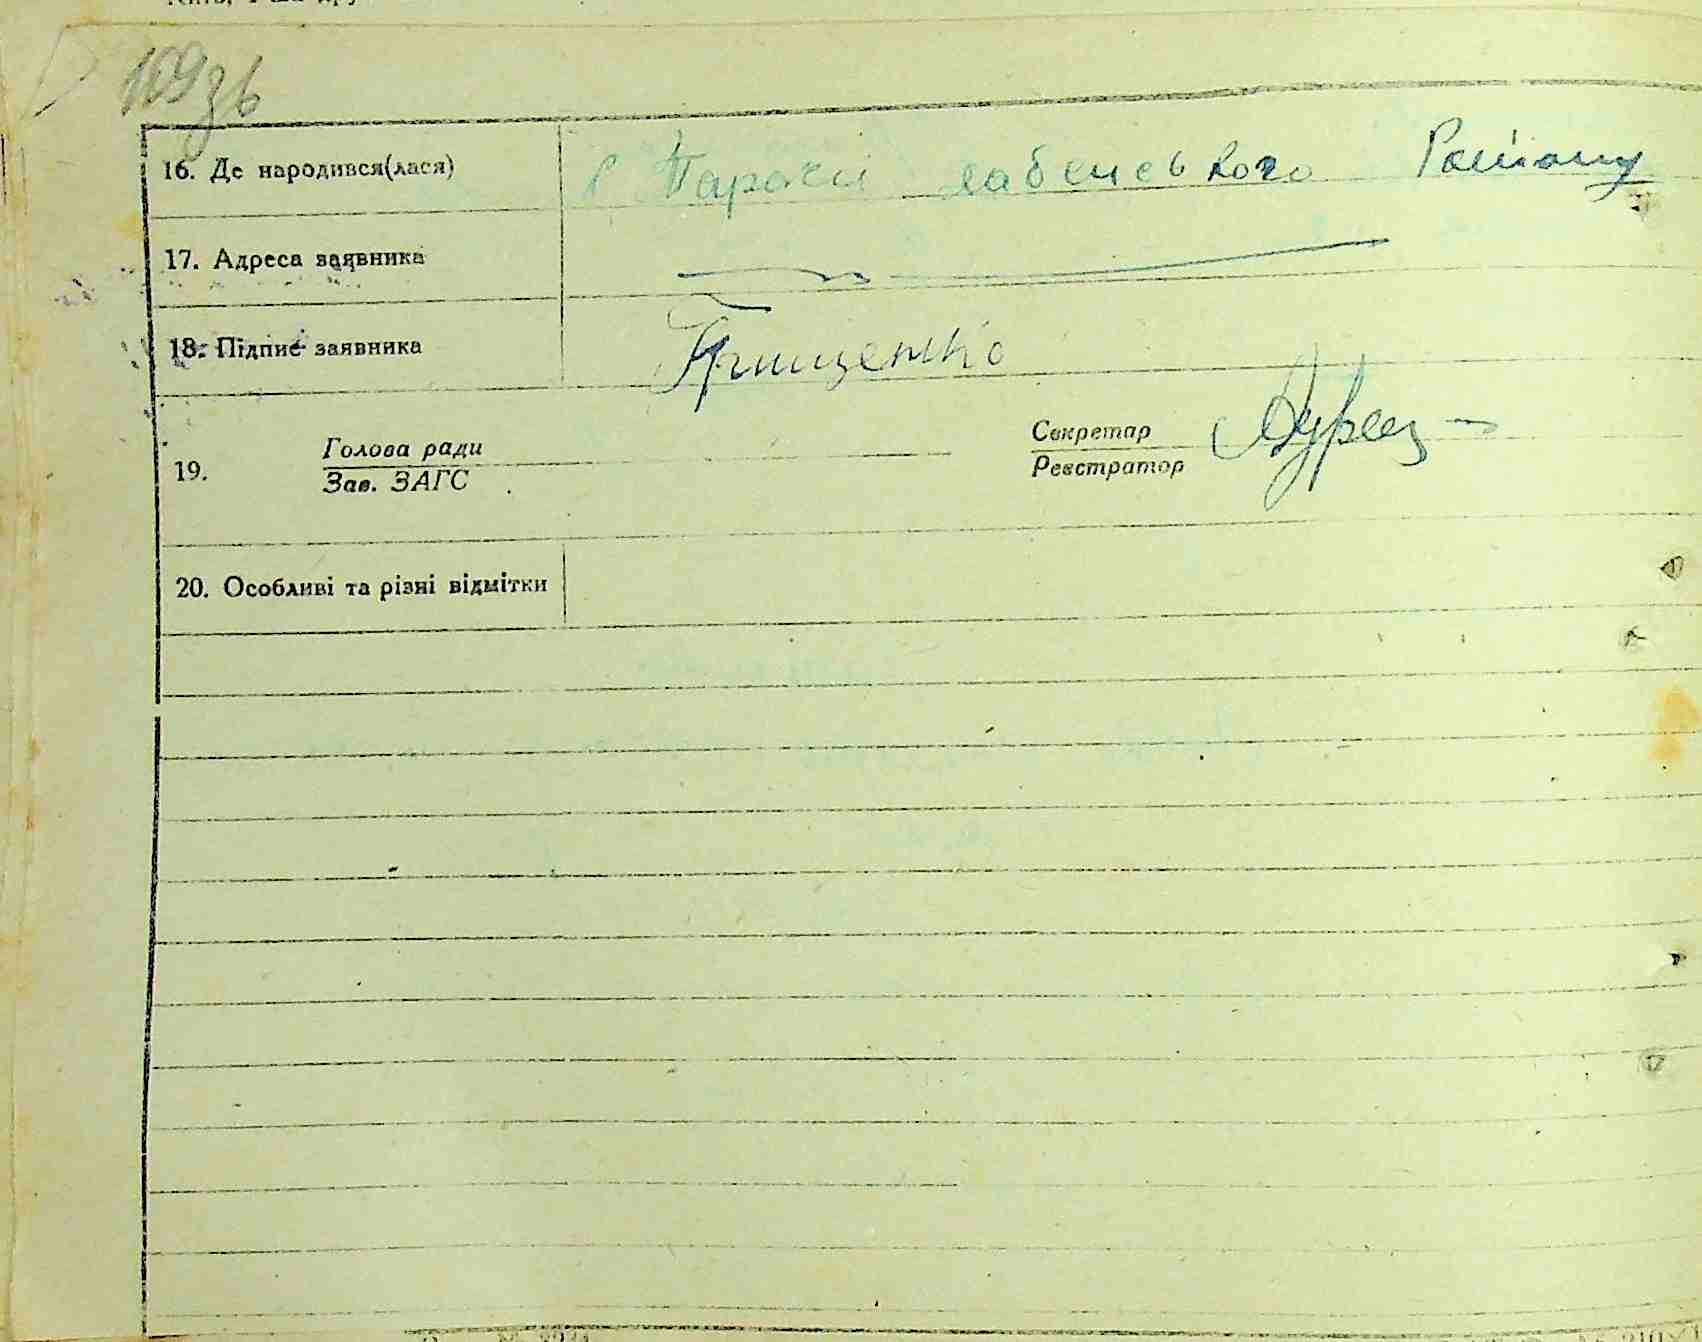 109зв
16. Де народився(лася) с Тараски лабенського Району
17. Адреса заявника
18. Підпис заявника Грищенко
19. Голова ради Секретар
Зав. ЗАГС Реєстратор
20. Особливі та різні відмітки